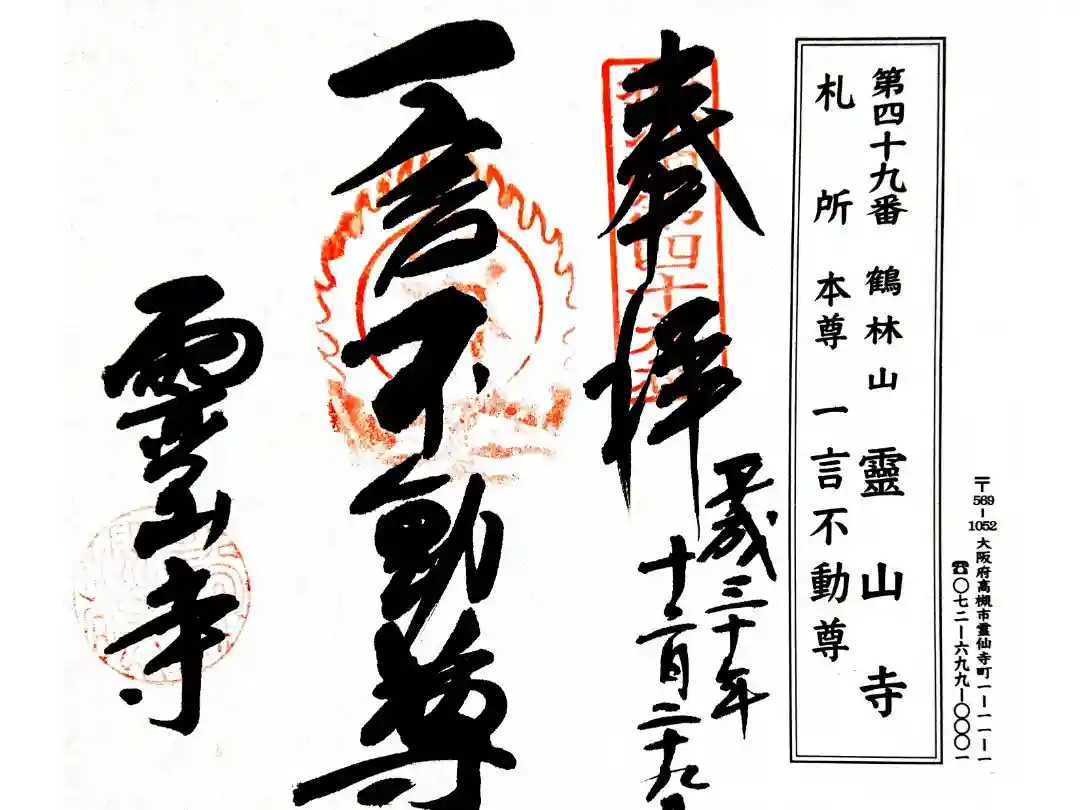 〒569-1052 大阪府高槻市霊仙寺町一-一一-一
☎〇七二-六九九-〇〇〇一
第四十九番 鶴林山 靈山寺
札所 本尊 一言不動尊
奉拝
平成三十年
十二月二十九
一言不動尊
靈山寺